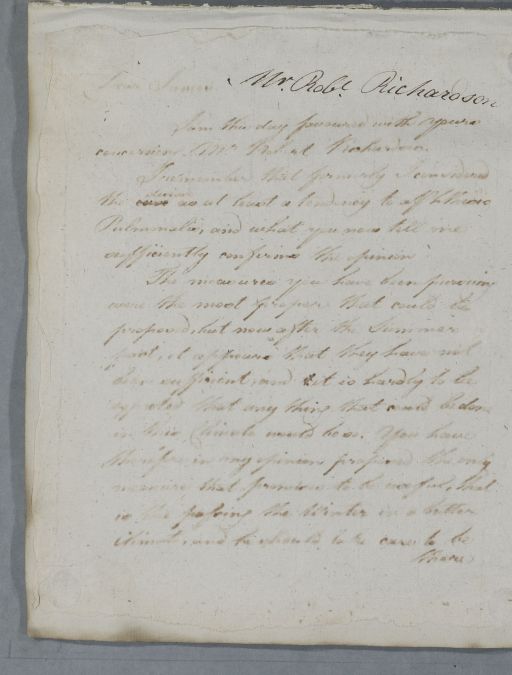 Mr. Robt. Richardson
Dear James
I am this day favoured with yours
concerning Mr Robert Richardson.
I remember that formerly I considered
disease
the case as at least a tendency to a Phthisis
Pulmonalis, and what you now tell me
sufficiently confirms the opinion
The measures you have been pursuing
were the most proper that could be
proposed, but now after the Summer
past, it appears that they have not
been sufficient, and it is hardly to be
expected that any thing that could be done
in this Climate would be so. You have
therefore in my opinion proposed the only
measure that promises to be useful, that
is the passing the Winter in a better
climate, and he should take care to be
there